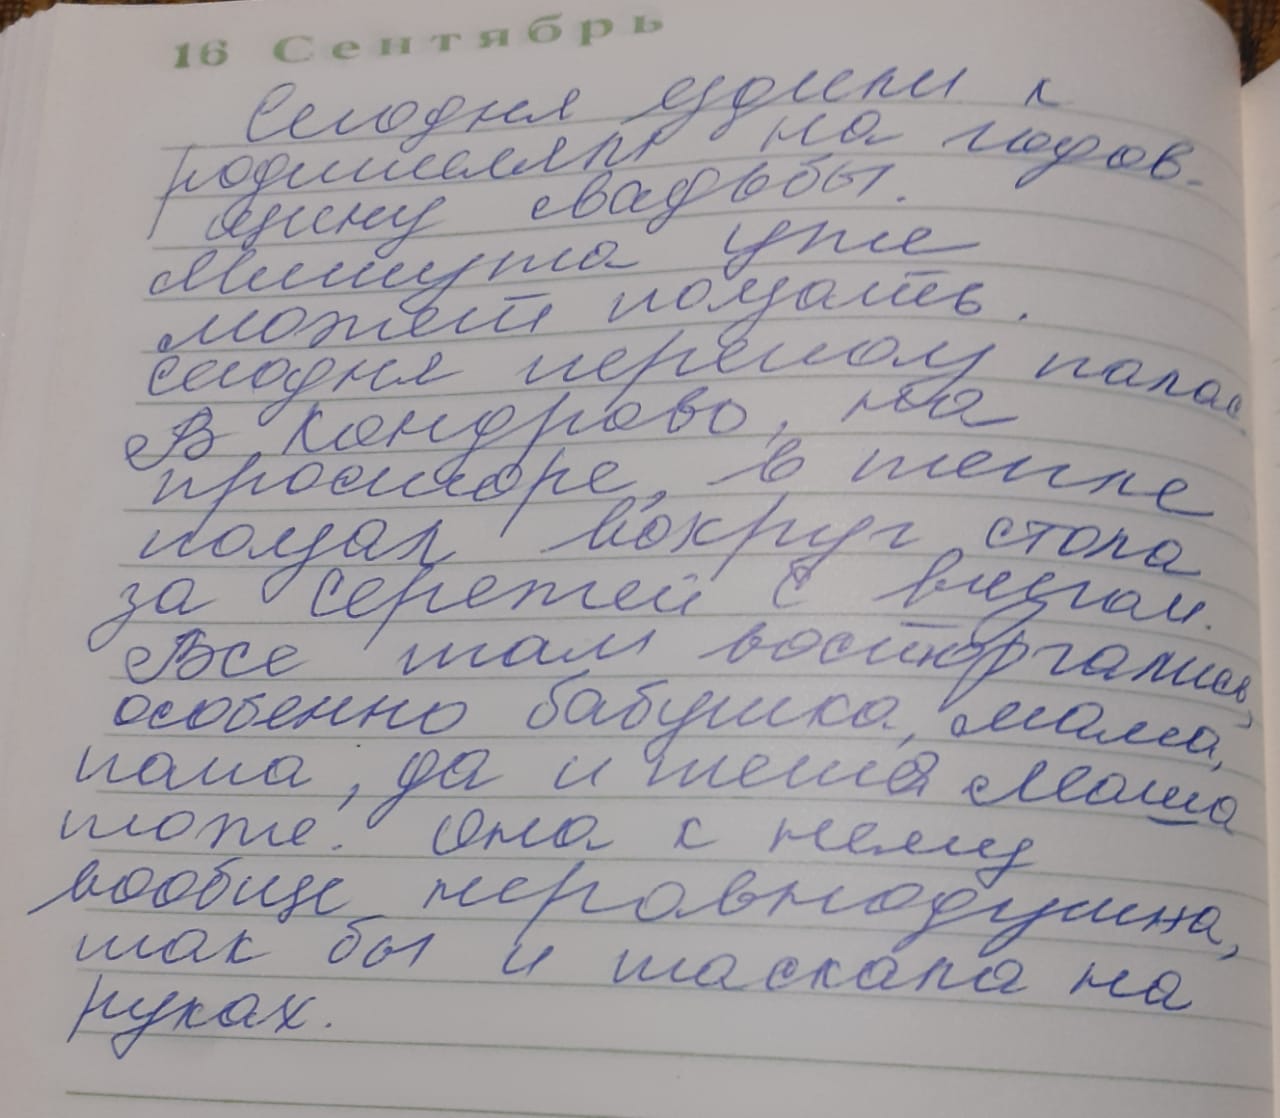 16 Сентябрь
Сегодня ездили к
родителям на годов-
щину свадьбы.
Мишута уже
может ползать.
Сегодня
В Кондрово, на
просторе, в
ползал вокруг стола
за Сережей с визгом.
Все там восторгались,
особенно бабушка, мама,
папа, да и тетя Маша
тоже. Она к нему
вообще неравнодушна,
так бы и таскала на
руках.